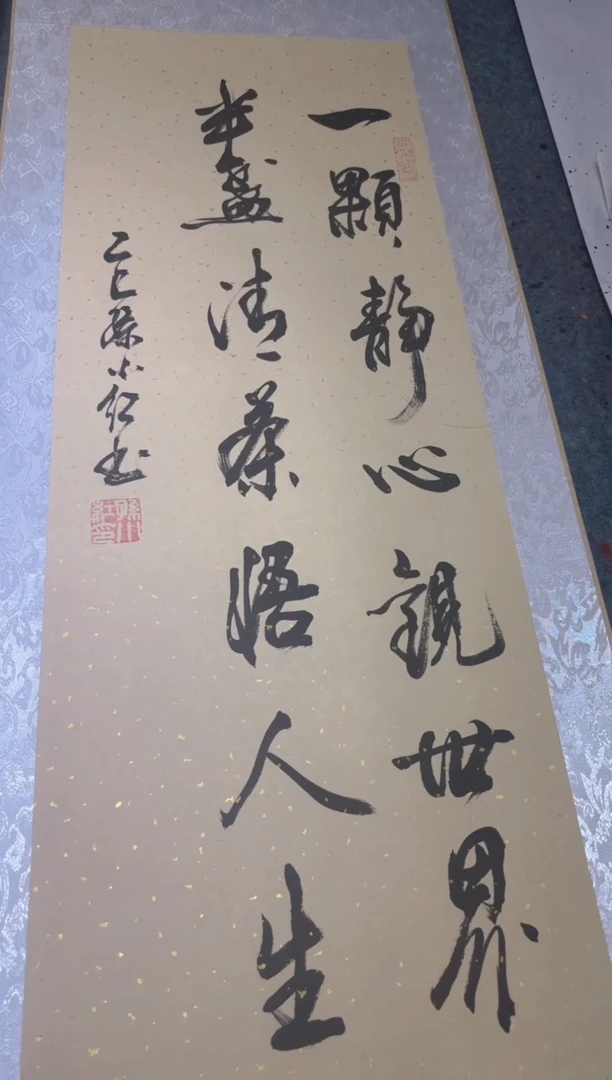 一顆靜心觀世界
半盞清茶悟人生
乙巳孫小紅書